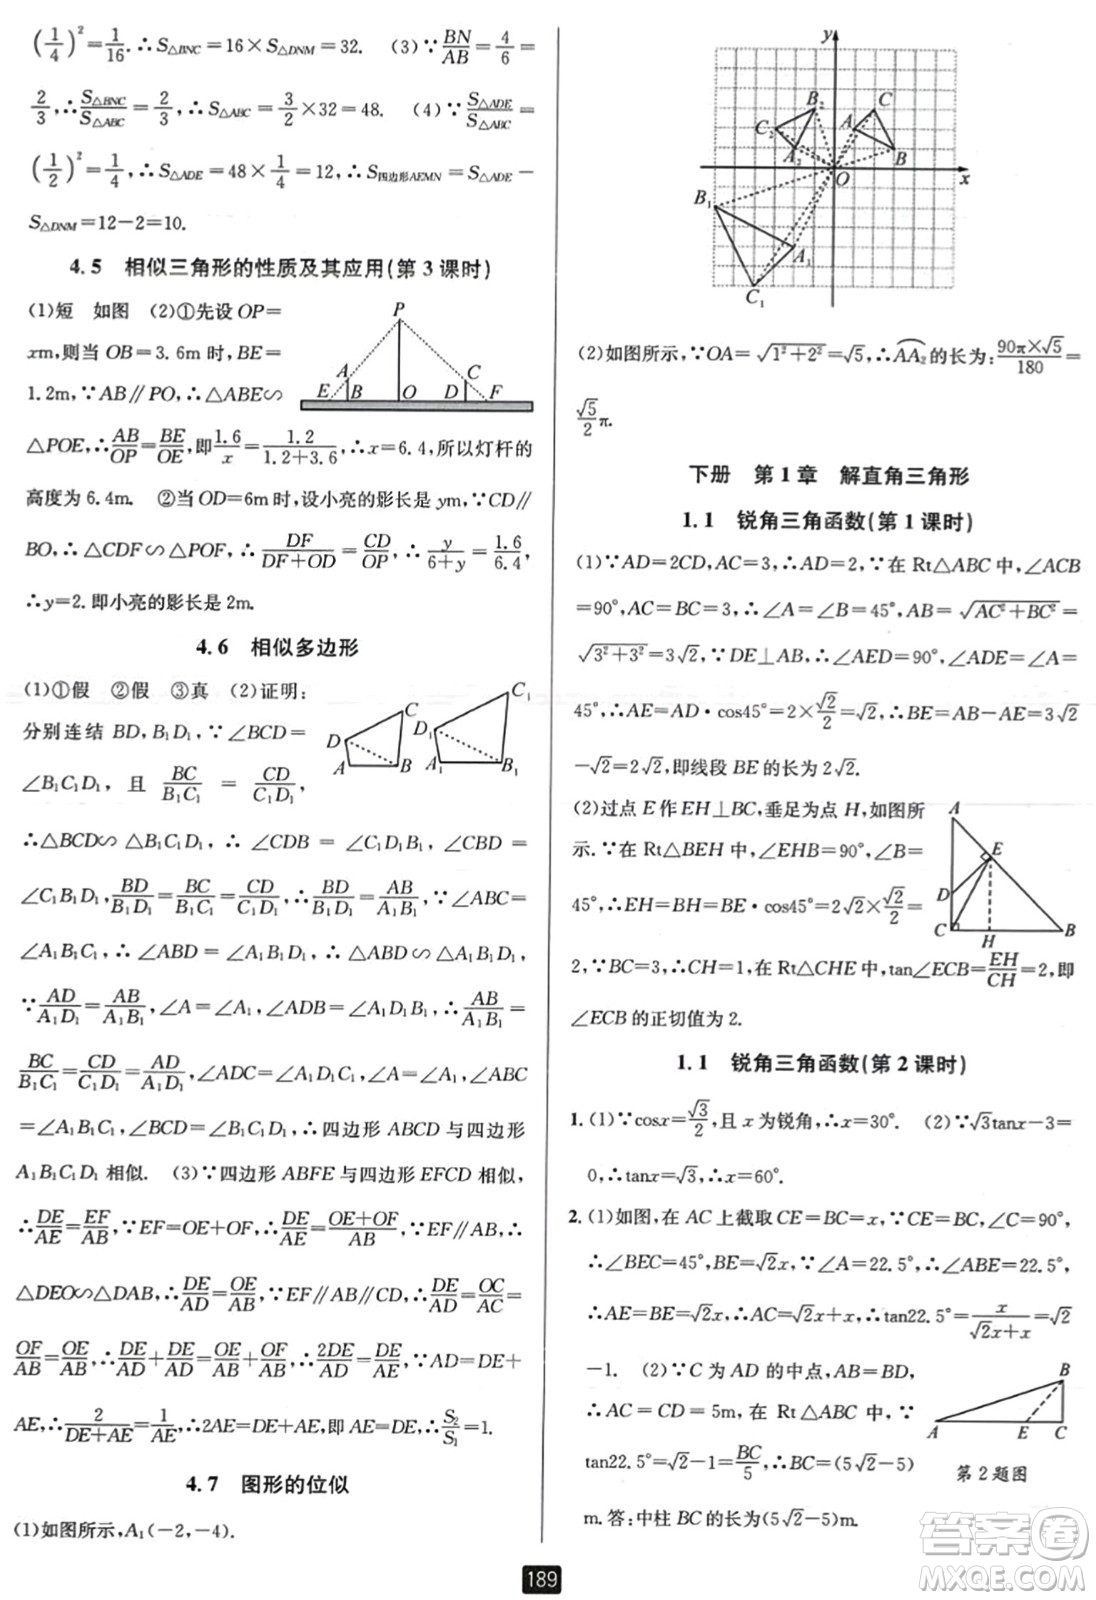 (1/4)²=1/16.∴S△BNC=16×S△DNM=32. (3)∵BN/AB=4/6=
2/3,∴S△BNC/S△ABC=2/3,∴S△ABC=3/2×32=48. (4)∵S△ADE/S△ABC=
(1/2)²=1/4,∴S△ADE=48×1/4=12,∴S四边形AEMN=S△ADE-
S△DNM=12-2=10.
4.5 相似三角形的性质及其应用(第3课时)
(1)短 如图 (2)①先设OP=
xm,则当OB=3.6m时,BE=
1.2m,∵AB∥PO,∴△ABE∽
△POE,∴AB/OP=BE/OE,即1.6/x=1.2/(1.2+3.6),∴x=6.4,所以灯杆的
高度为6.4m. ②当OD=6m时,设小亮的影长是ym,∵CD∥
BO,∴△CDF∽△POF,∴DF/(DF+OD)=CD/OP,∴y/(6+y)=1.6/6.4,
∴y=2.即小亮的影长是2m.
P
A
C
E
B
O
D
F
4.6 相似多边形
(1)①假 ②假 ③真 (2)证明:
分别连结BD,B₁D₁,∵∠BCD=
∠B₁C₁D₁,且BC/B₁C₁=CD/C₁D₁,
∴△BCD∽△B₁C₁D₁,∴∠CDB=∠C₁D₁B₁,∠CBD=
∠C₁B₁D₁,BD/B₁D₁=BC/B₁C₁=CD/C₁D₁,∴BD/B₁D₁=AB/A₁B₁,∵∠ABC=
∠A₁B₁C₁,∴∠ABD=∠A₁B₁D₁,∴△ABD∽△A₁B₁D₁,
∵AD/A₁D₁=AB/A₁B₁,∠A=∠A₁,∠ADB=∠A₁D₁B₁,∴AB/A₁B₁=
BC/B₁C₁=CD/C₁D₁=AD/A₁D₁,∠ADC=∠A₁D₁C₁,∠ABC
=∠A₁B₁C₁,∠BCD=∠B₁C₁D₁,∴四边形ABCD与四边形
A₁B₁C₁D₁相似. (3)∵四边形ABFE与四边形EFCD相似,
∴DE/AE=EF/AB,∵EF=OE+OF,∴DE/AE=(OE+OF)/AB,∵EF∥AB,∴
△DEO∽△DAB,∴DE/AD=OE/AB,∵EF∥AB∥CD,∴DE/AD=OC/AC=
OF/AB=OE/AB,∴DE/AD+DE/AD=OE/AB+OF/AB,∴2DE/AD=DE/AE,∵AD=DE+
AE,∴2/(DE+AE)=1/AE,∴2AE=DE+AE,即AE=DE,∴S₂/S₁=1.
D
C
A
B
D₁
C₁
A₁
B₁
4.7 图形的位似
(1)如图所示,A₁(-2,-4).
y
x
O
A
B
C
A₂
B₂
C₂
A₁
B₁
C₁
(2)如图所示,∵OA=√(1²+2²)=√5,∴AA₂的长为:90π×√5/180=
√5/2π.
下册 第1章 解直角三角形
1.1 锐角三角函数(第1课时)
(1)∵AD=2CD,AC=3,∴AD=2,∵在Rt△ABC中,∠ACB
=90°,AC=BC=3,∴∠A=∠B=45°,AB=√(AC²+BC²)=
√(3²+3²)=3√2,∵DE⊥AB,∴∠AED=90°,∠ADE=∠A=
45°,∴AE=AD·cos45°=2×√2/2=√2,∴BE=AB-AE=3√2
-√2=2√2,即线段BE的长为2√2.
(2)过点E作EH⊥BC,垂足为点H,如图所
示.∵在Rt△BEH中,∠EHB=90°,∠B=
45°,∴EH=BH=BE·cos45°=2√2×√2/2=
2,∵BC=3,∴CH=1,在Rt△CHE中,tan∠ECB=EH/CH=2,即
∠ECB的正切值为2.
A
E
D
C
H
B
1.1 锐角三角函数(第2课时)
1.(1)∵cosx=√3/2,且x为锐角,∴x=30°. (2)∵√3tanx-3=
0,∴tanx=√3,∴x=60°.
2.(1)如图,在AC上截取CE=BC=x,∵CE=BC,∠C=90°,
∴∠BEC=45°,BE=√2x,∵∠A=22.5°,∴∠ABE=22.5°,
∴AE=BE=√2x,∴AC=√2x+x,∴tan22.5°=x/(√2x+x)=√2
-1. (2)∵C为AD的中点,AB=BD,
∴AC=CD=5m,在Rt△ABC中,∵
tan22.5°=√2-1=BC/5,∴BC=(5√2-5)
m.答:中柱BC的长为(5√2-5)m.
B
A
E
C
第2题图
189
答案卷
MXQE.COM